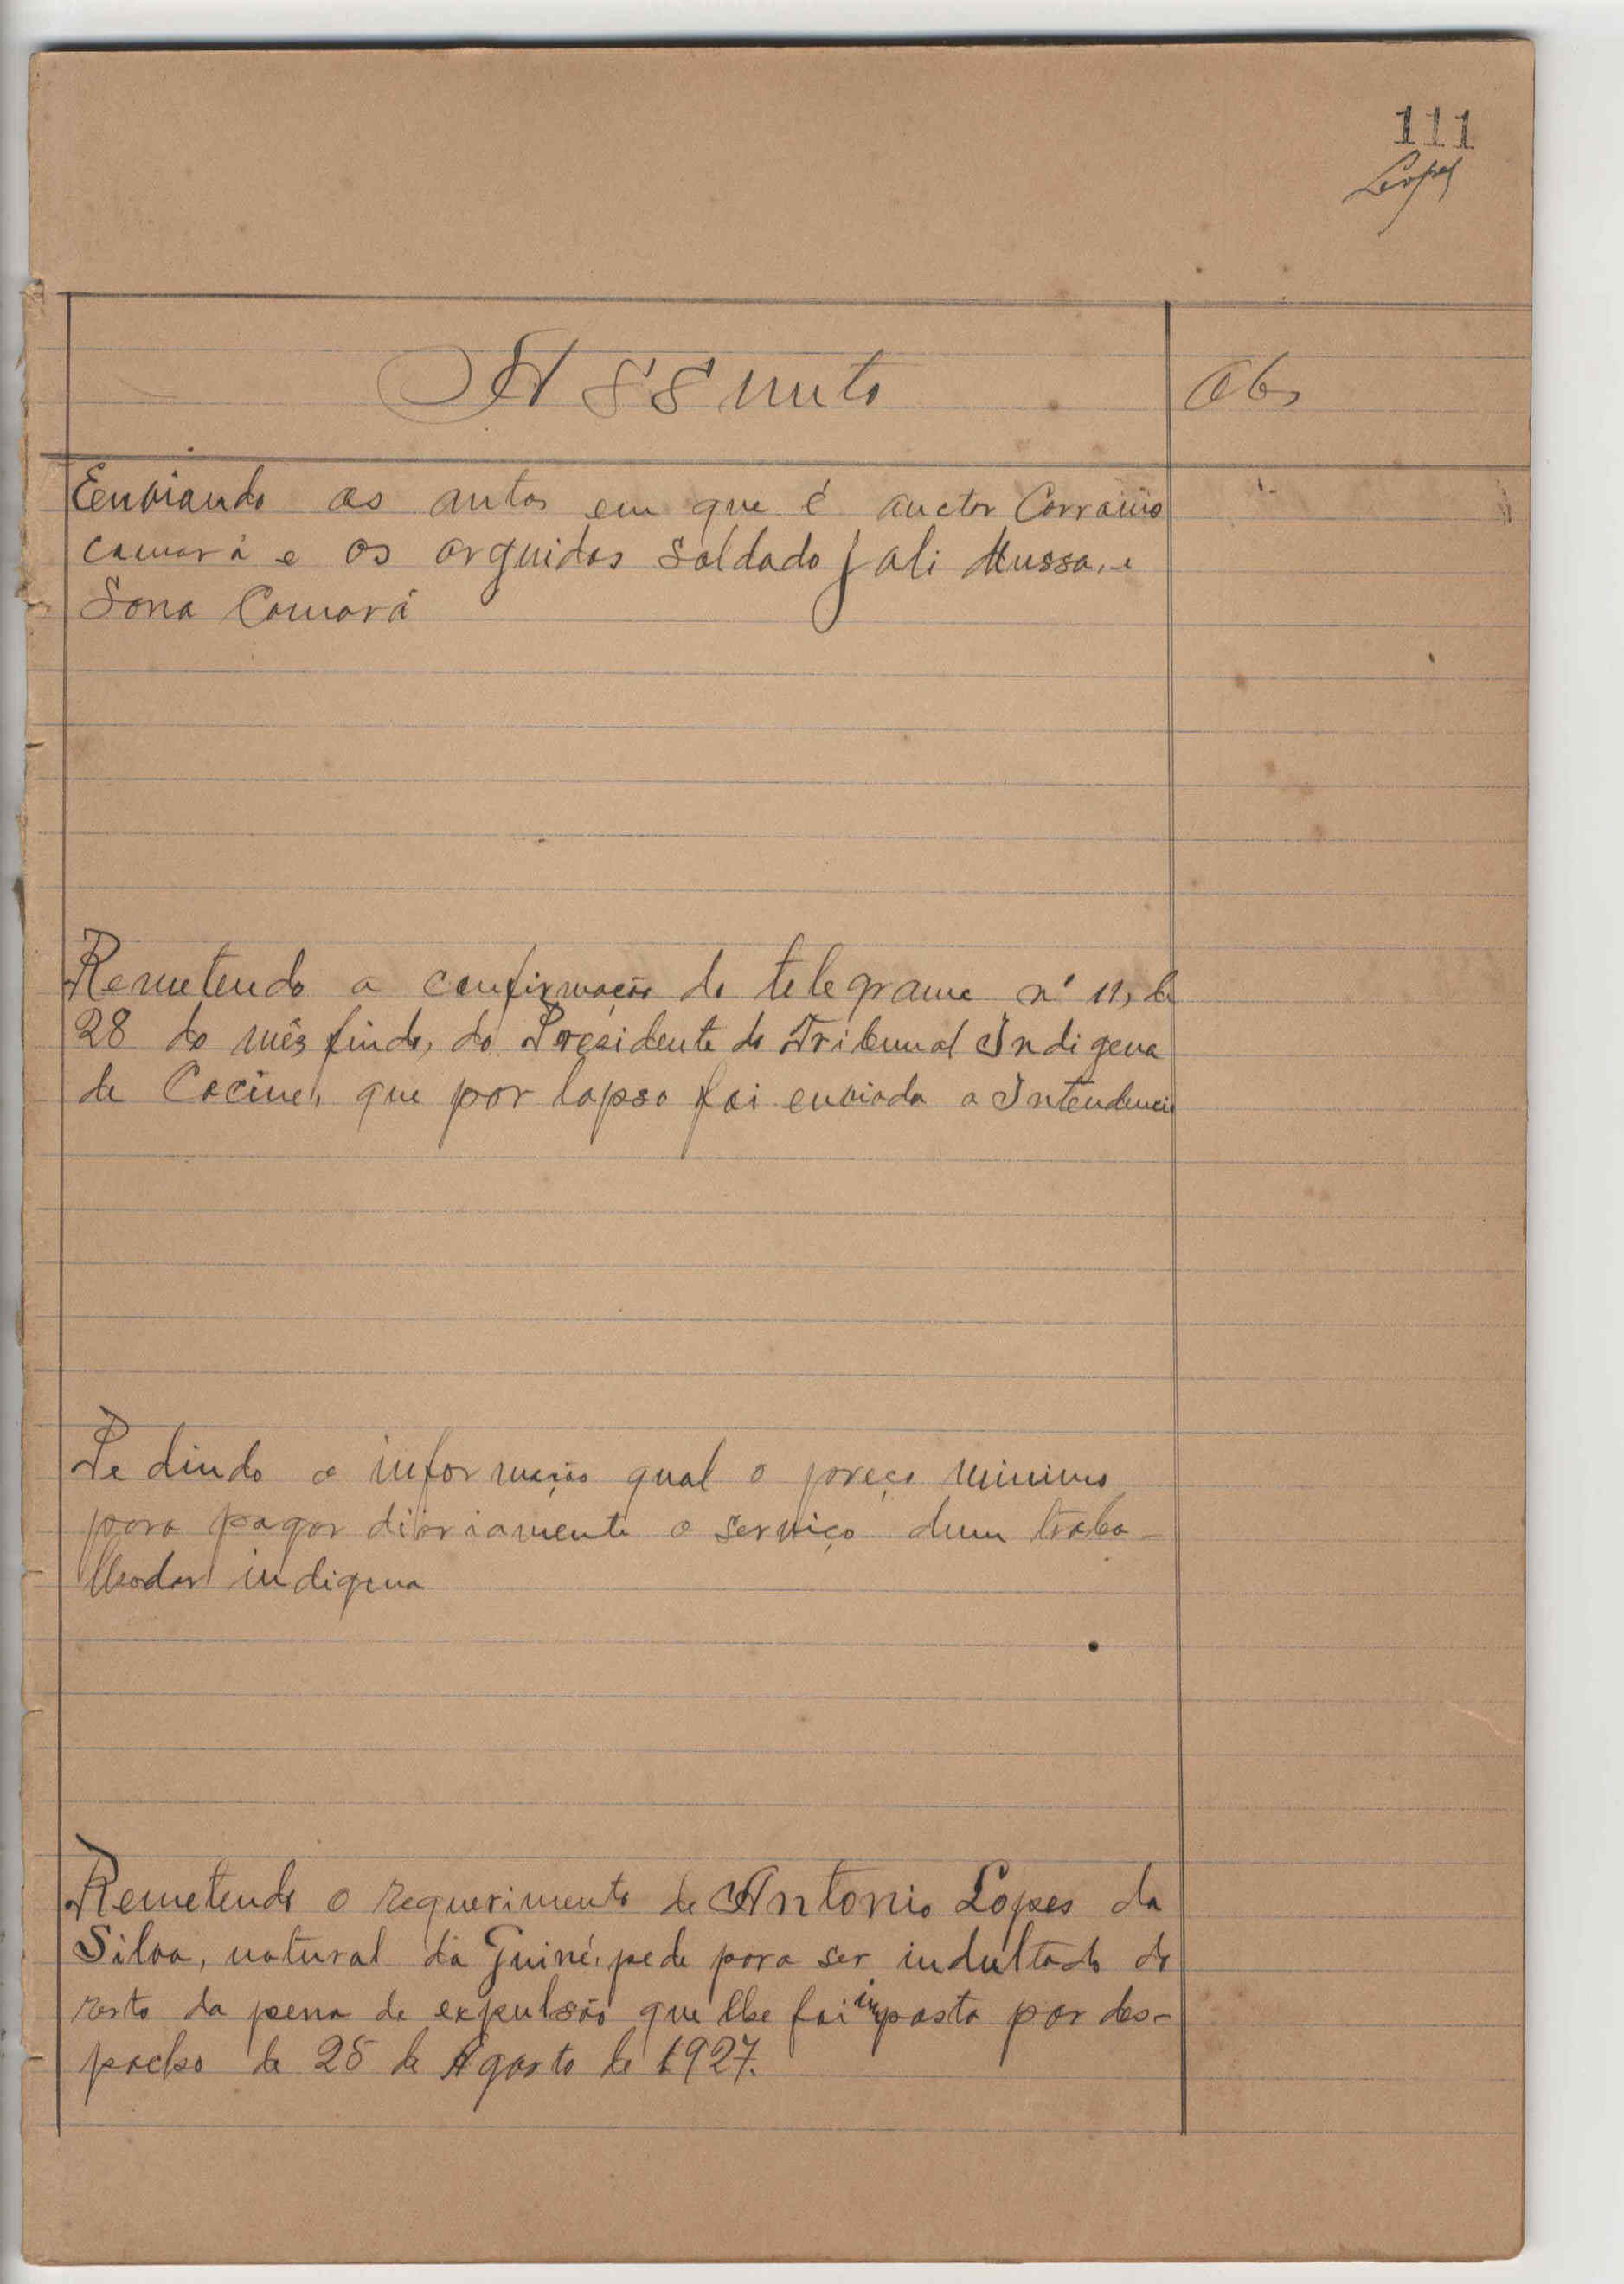 111
Lopes
Assunto
Obs
Eenviando os autos em que é auctor Corramo
Camará e os arguidos soldado Jali Mussa, e
Sona Camará
Remetendo a confirmação do telegrama nº 11, de
28 do mês findo, do Presidente do Tribunal Indigena
de Cacine, que por lapso foi enviada a Intendencia
Pedindo a informação qual o preço minimo
para pagar diariamente o serviço dum traba-
lhador indigena
Remetendo o requerimento de Antonio Lopes da
Silva, natural da Guiné, pede para ser indultado do
resto da pena de expulsão que lhe foi imposta por des-
pacho de 25 de Agosto de 1927.